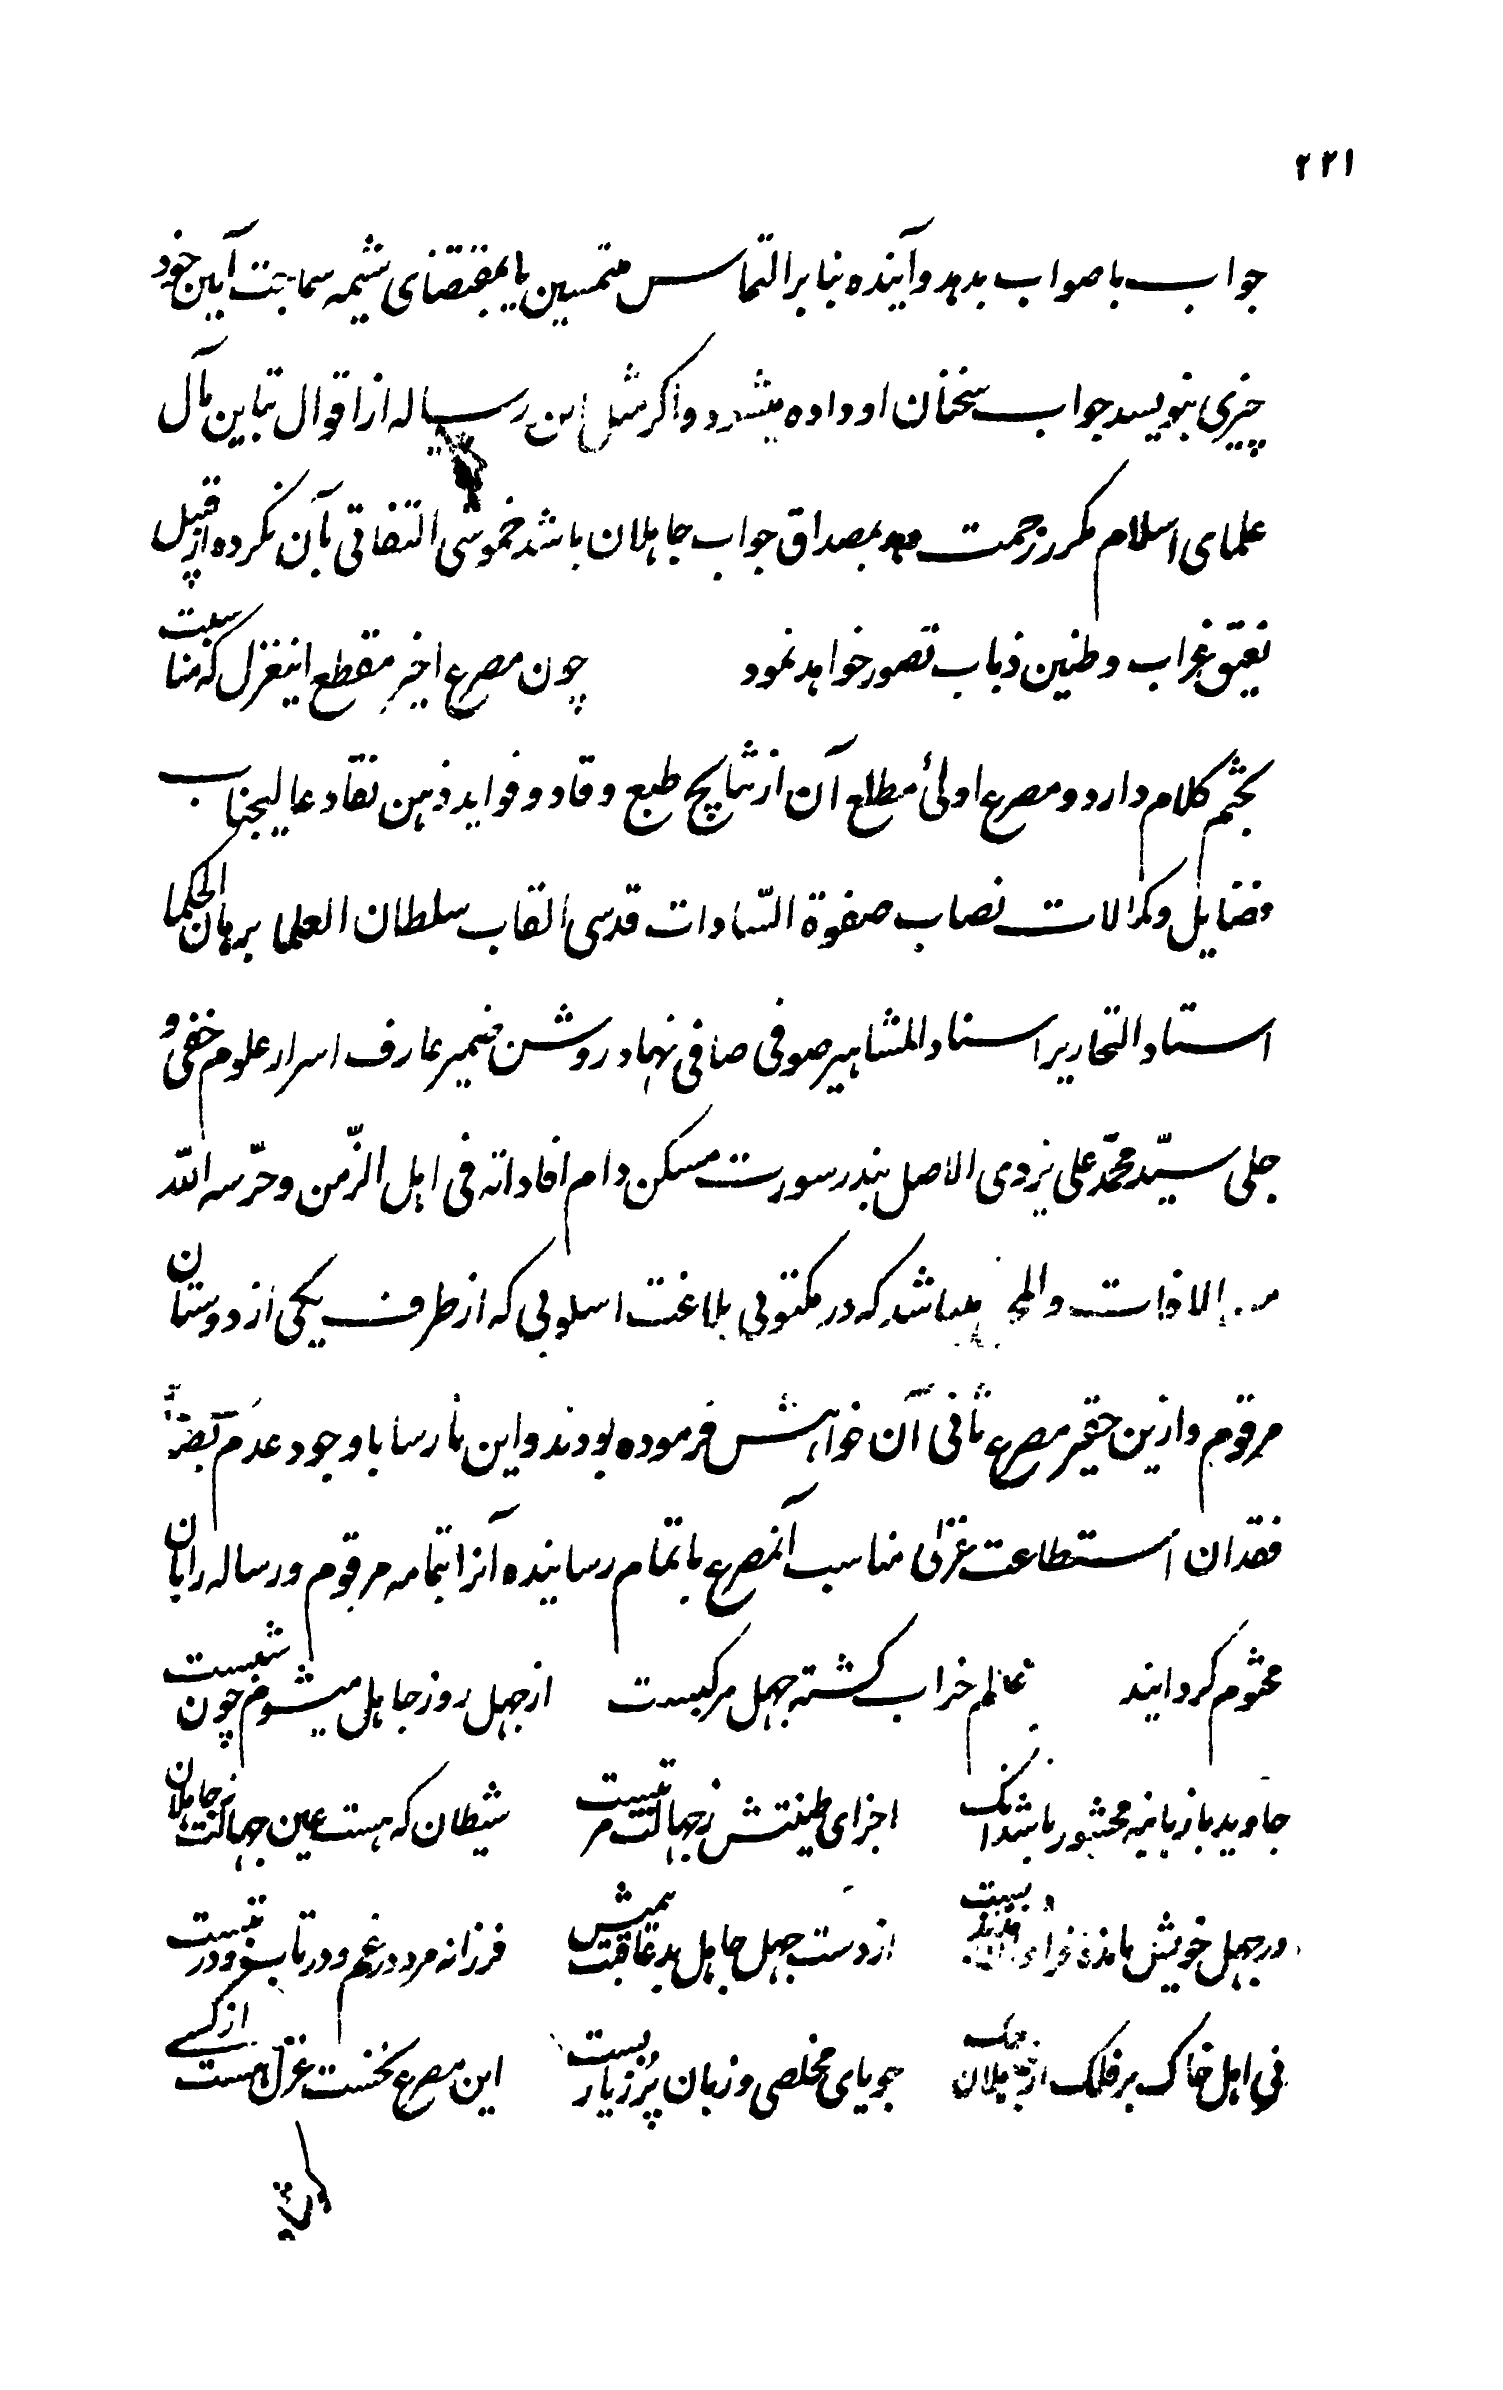 ۲۲۱
جواب باصواب بدهد و آینده بنابر التماس ملتمسین یا بمقتضای شیمه سماجت آیین خود
چیزی بنویسد جواب سخنان او داده میشود و اگر مثل این رساله از اقوال تباین مآل
علمای اسلام مکرر زحمت دهد بمصداق جواب جاهلان باشد خموشی التفاتی بآن نکرده از قبیل
نعیق غراب و طنین ذباب تصور خواهد نمود چون مصرع اخیر مقطع اینغزل که مناسبت
بختم کلام دارد و مصرع اولیٰ مطلع آن از نتایج طبع وقاد و فواید ذهن نقاد عالیجناب
فضایل و کمالات نصاب صفوة السّادات قدسی القاب سلطان العلما برهان الحکما
استاد النحاریر اسناد المشاهیر صوفی صافی نهاد روشن ضمیر عارف اسرار علوم خفی و
جلی سیّد محمّد علی یزدی الاصل بندر سورت مسکن دام افاداته فی اهل الزّمن و حرّسه اللّه
الافات والمحن میباشد که در مکتوبی بلاغت اسلوبی که از طرف یکی از دوستان
مرقوم و ازین حقیر مصرع ثانی آن خواهش فرموده بودند و این نارسا با وجود عدم
فقدان استطاعت غزلی مناسب آنمصرع باتمام رسانیده آنرا بتمامه مرقوم و رساله را بآن
مختوم گردانید عالم خراب گشته جهل مرکبست از جهل روز جاهل میشوم چون شبست
جاوید باز بانیه محشور باشد آنک اجزای طینتش ز جهالت مرتبست شیطان که هست عین جهالت ز جاهلان
در جهل خویش مانده از دست جهل جاهل بد عاقبت فرزانه مرد در غم و در تاب و در تبست
فی اهل خاک بر فلک از جویای مخلصی و زبان پُر ز یاربست این مصرع نخست غزل هست از کسے